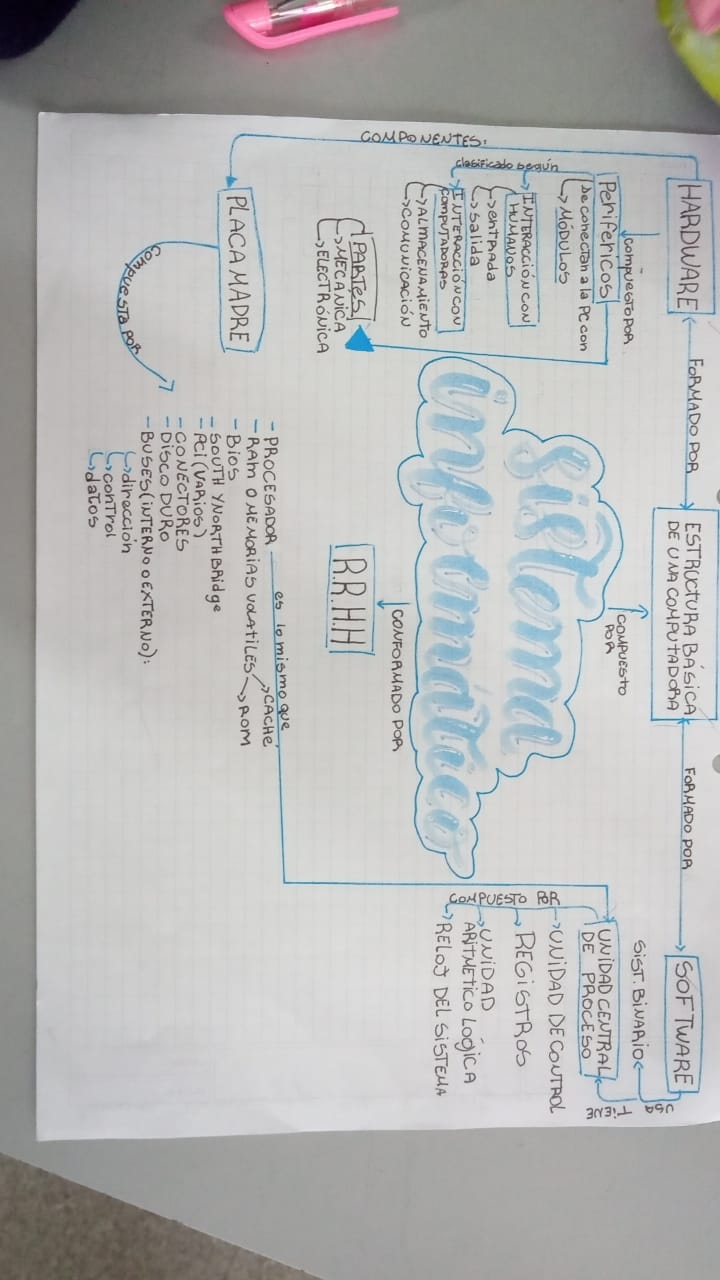 HARDWARE
FORMADO POR
ESTRUCTURA BÁSICA
DE UNA COMPUTADORA
FORMADO POR
SOFTWARE
USA TIENE
SIST. BINARIO
UNIDAD CENTRAL
DE PROCESO
COMPUESTO POR
UNIDAD DE CONTROL
REGISTROS
UNIDAD
ARITMETICO LÓGICA
RELOJ DEL SISTEMA
COMPUESTO
POR
Sistema
informático
CONFORMADO POR
R.R.H.H
compuesto por
Perifericos
De conectan a la PC con
MÓDULOS
clasificado según
INTERACCIÓN CON
HUMANOS
entrada
salida
INTERACCIÓN CON
computadoras
ALMACENAMIENTO
COMUNICACIÓN
PARTES
MECÁNICA
ELECTRÓNICA
COMPONENTES:
PLACA MADRE
compuesta por
- PROCESADOR es lo mismo que
- RAM O MEMORIAS VOLATILES
CACHÉ
ROM
- Bios
- SOUTH Y NORTH Bridge
- PCI (VARIOS)
- CONECTORES
- DISCO DURO
- BUSES (INTERNO O EXTERNO):
dirección
control
datos